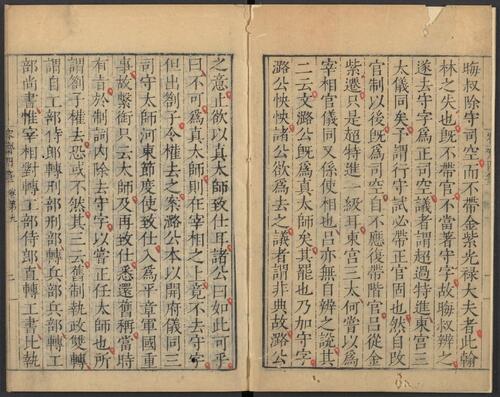 晦叔除守司空而不帶金紫光祿大夫者此翰
林之失也旣不帶官不當著守字故晦叔辨之
遂去守字爲正司空議者謂超過特進東宮三
太儀同矣予謂行守試必帶正官固也然自改
官制以後旣爲司空自不應復帶階官呂從金
紫遷只是超特進一級耳東宮三太何嘗以爲
宰相官儀同又係使相也呂亦無自辨之說其
二云文潞公旣爲真太師矣其罷也乃加守字
潞公怏怏諸公欲爲去之議者謂非典故潞公
之意止欲以真太師致仕耳諸公曰如此可乎
曰不可爲真太師則在宰相之上竟不去守字
但出劄子令權去之案潞公本以開府儀同三
司守太師河東節度使致仕入爲平章軍國重
事故繫銜只云太師及再致仕悉還舊稱當時
有旨於制詞內除去守字以嘗正任太師也所
謂劄子權去恐或不然其三云舊制執政雙轉
謂自工部侍郎轉刑部刑部轉兵部兵部轉工
部尚書惟宰相對轉工部侍郎直轉工書比執